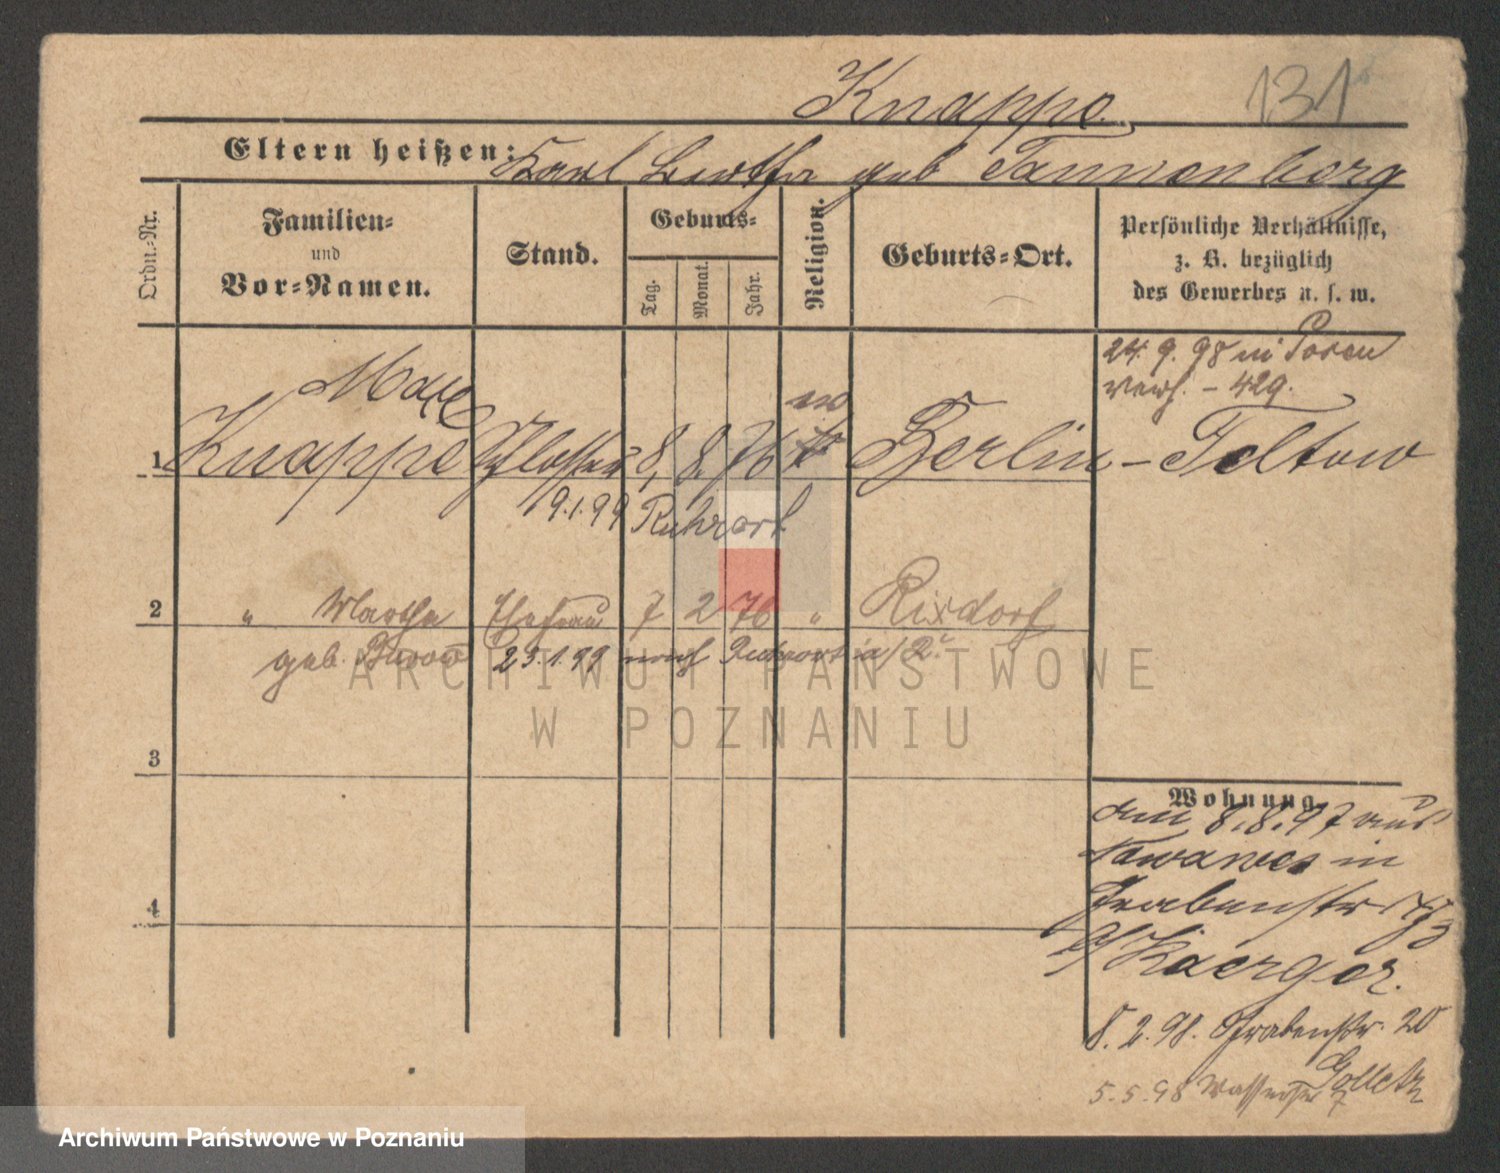 Knappe
131
Eltern heißen: Karl Bertha geb Tannenberg
Ordn.-Nr.
Familien-
und
Vor-Namen.
Stand.
Geburts-
Tag.
Monat.
Jahr.
Religion.
Geburts-Ort.
Persönliche Verhältnisse,
z. B. bezüglich
des Gewerbes u. s. w.
24. 9. 98 in Posen
verh. - 429.
Max
ev
1 Knappe Schlosser 8, 8. 76 Berlin - Teltow
9.1.99 Ruhrort
2 " Martha Ehefrau 7 2 76 " Rixdorf
geb. Burow 23.1.99 nach Ruhrort a/R.
3
4
Wohnung
am 8.8.97 aus
in
Grabenstr
b/ Kaerger.
8.2.98. Grabenstr. 20
Golletz
5.5.98 Wasserstr 7
ARCHIWUM PAŃSTWOWE
W POZNANIU
Archiwum Państwowe w Poznaniu